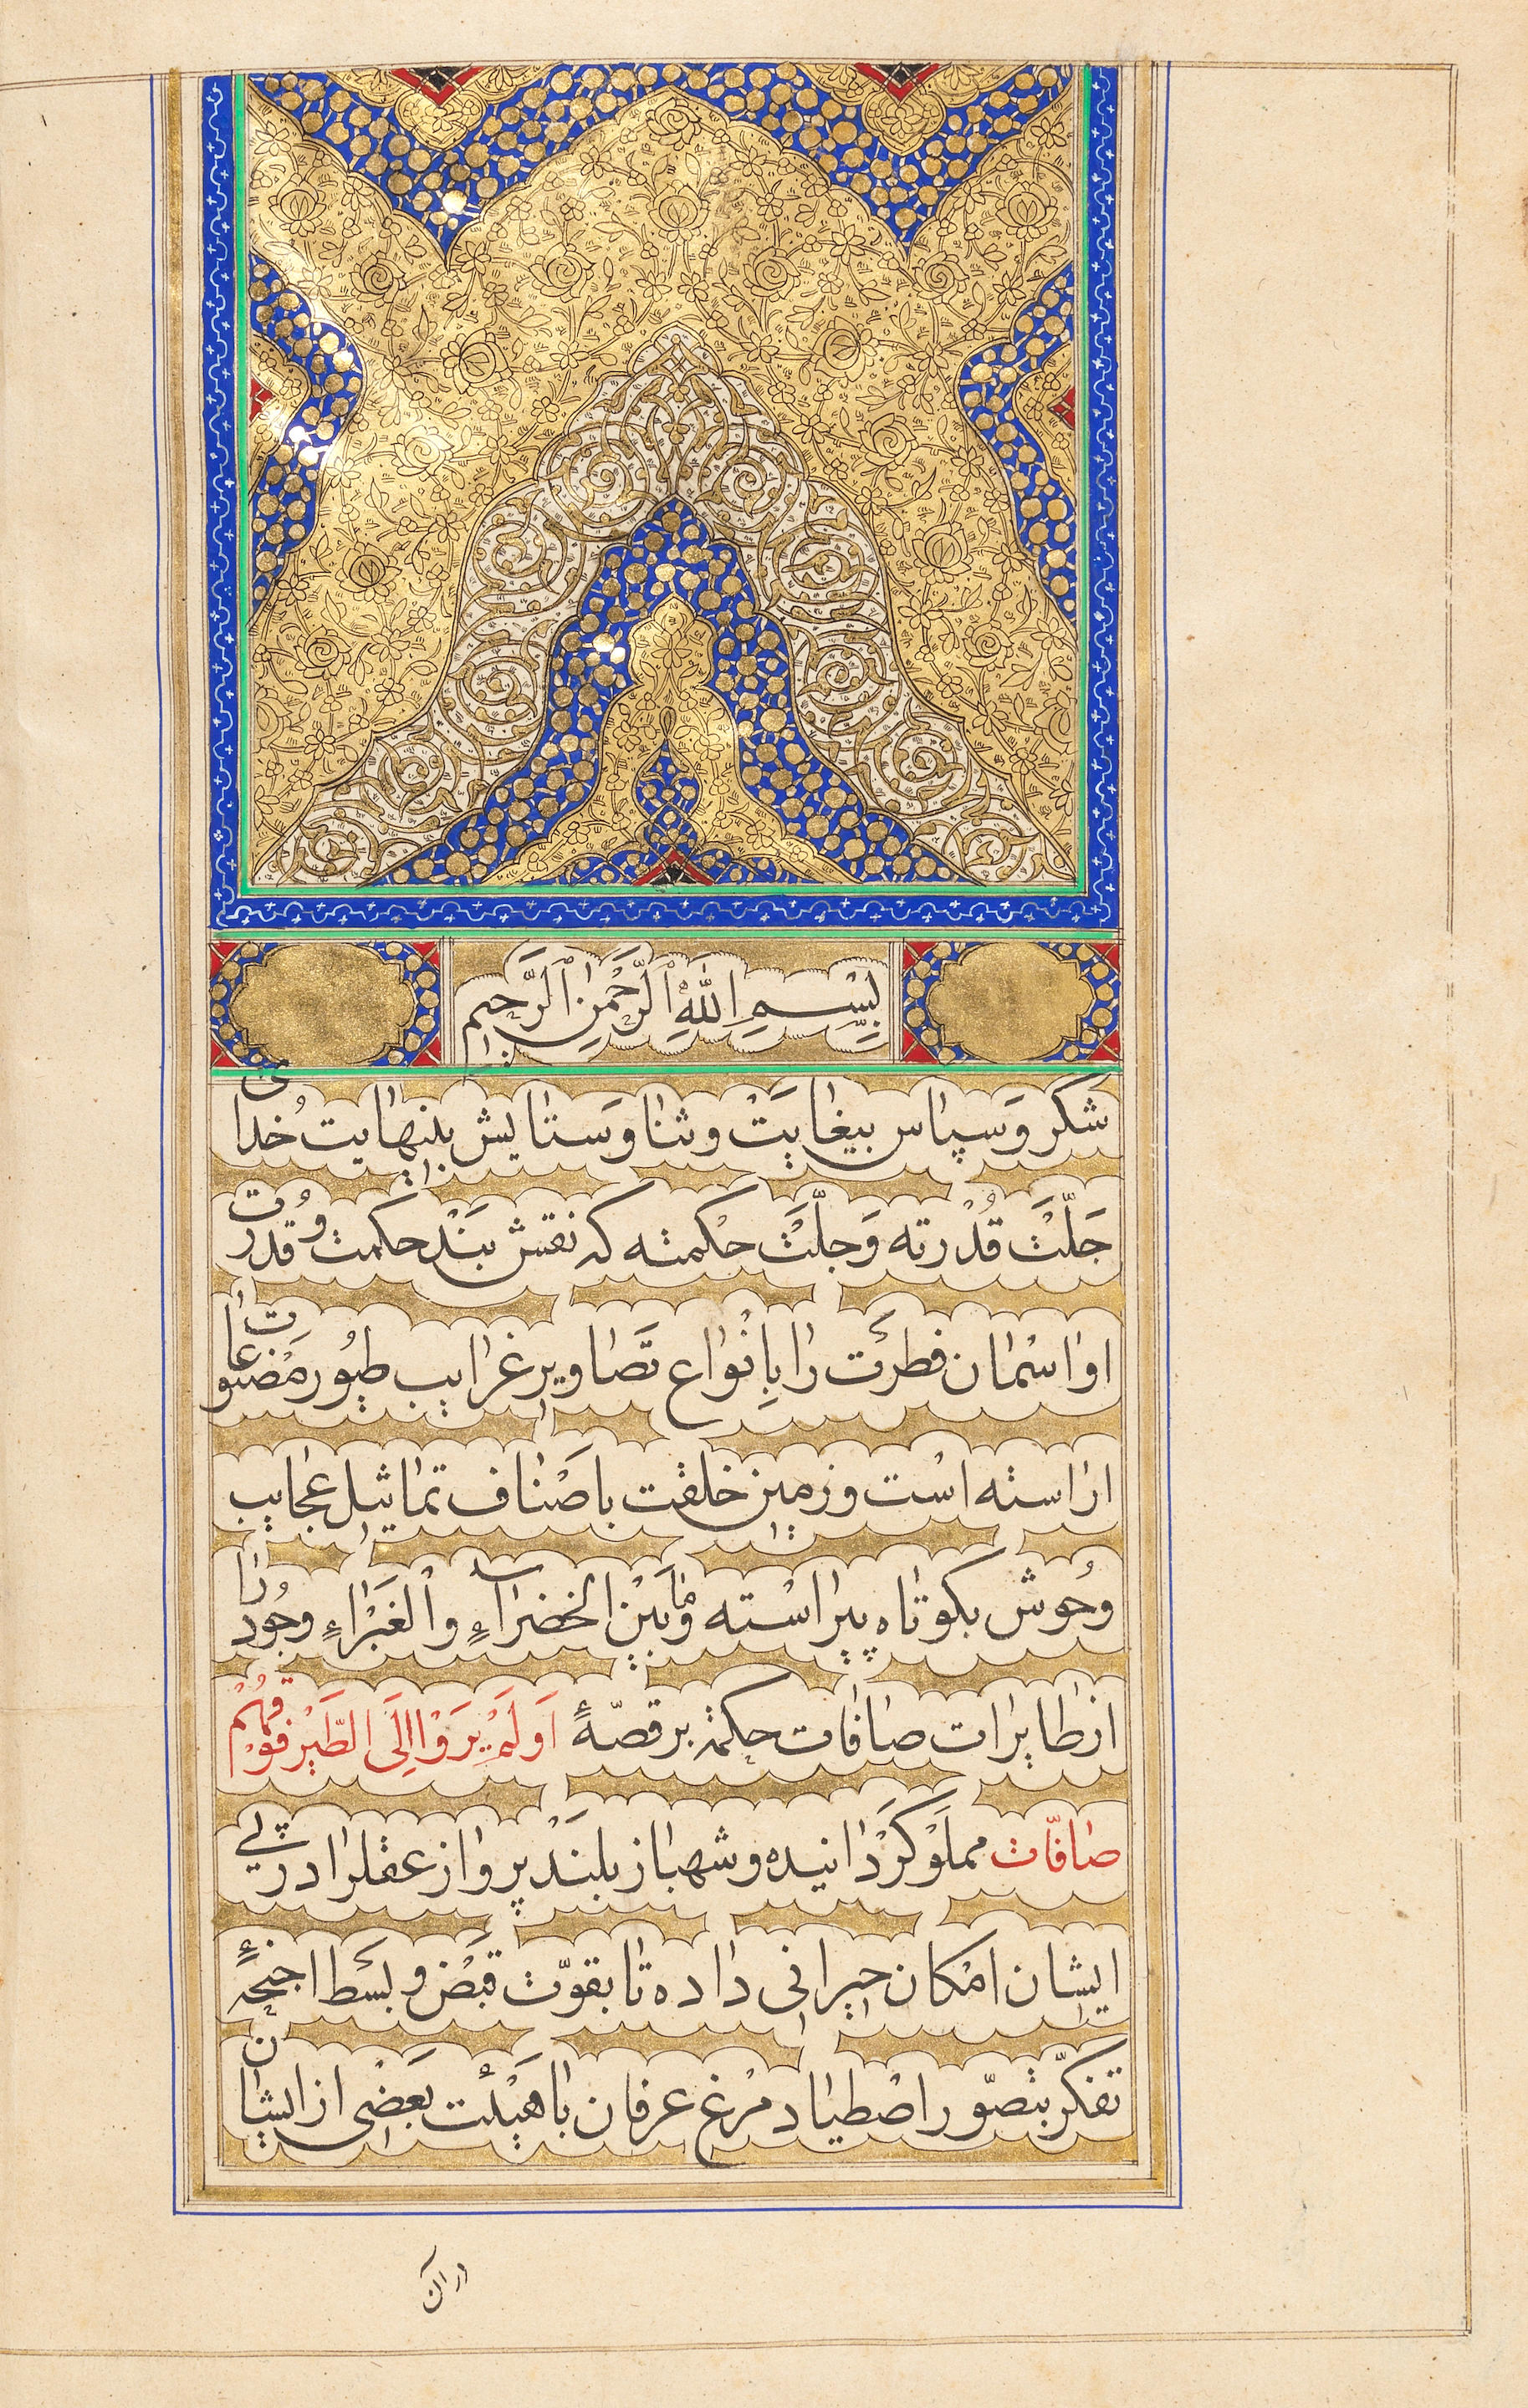 بِسْمِ اللّٰهِ الرَّحْمٰنِ الرَّحِيمِ
شكر وَسپاس بيغايَتْ وثنا وَستايش بينهايت خُدائی
جَلَّتْ قُدْرته وَجلَّتْ حكْمته كه نقش بَنْد حكمت وُ قدرت
او اسْمان فطرَت را بِانْواع تَصاوير غرايب طيُور مَصْنوعات
اراسته اسْت وزمين خلقت باصْناف تماثيل عجايب
وحُوش بكوتاه پيراسْته ومٰا بَيْن الخضرآءِ والْغَبْراءِ وجُود را
از طايرات صافات حكمة بر قصّهٔ اَوَلَمْ يَرَوْا اِلَى الطَّيْرِ فَوْقَهُمْ
صافّات مملَوْ كَرْدانيده وشهباز بلَنْد پرواز عقلرا در پى
ايشان امْكان حيرانى داده تا بقوّت قَبْض و بسَط اجنحهٔ
تفكّر بتصوّر اصْطياد مرْغ عرفان با هَيْئت بَعْضى از ايشان
از آن